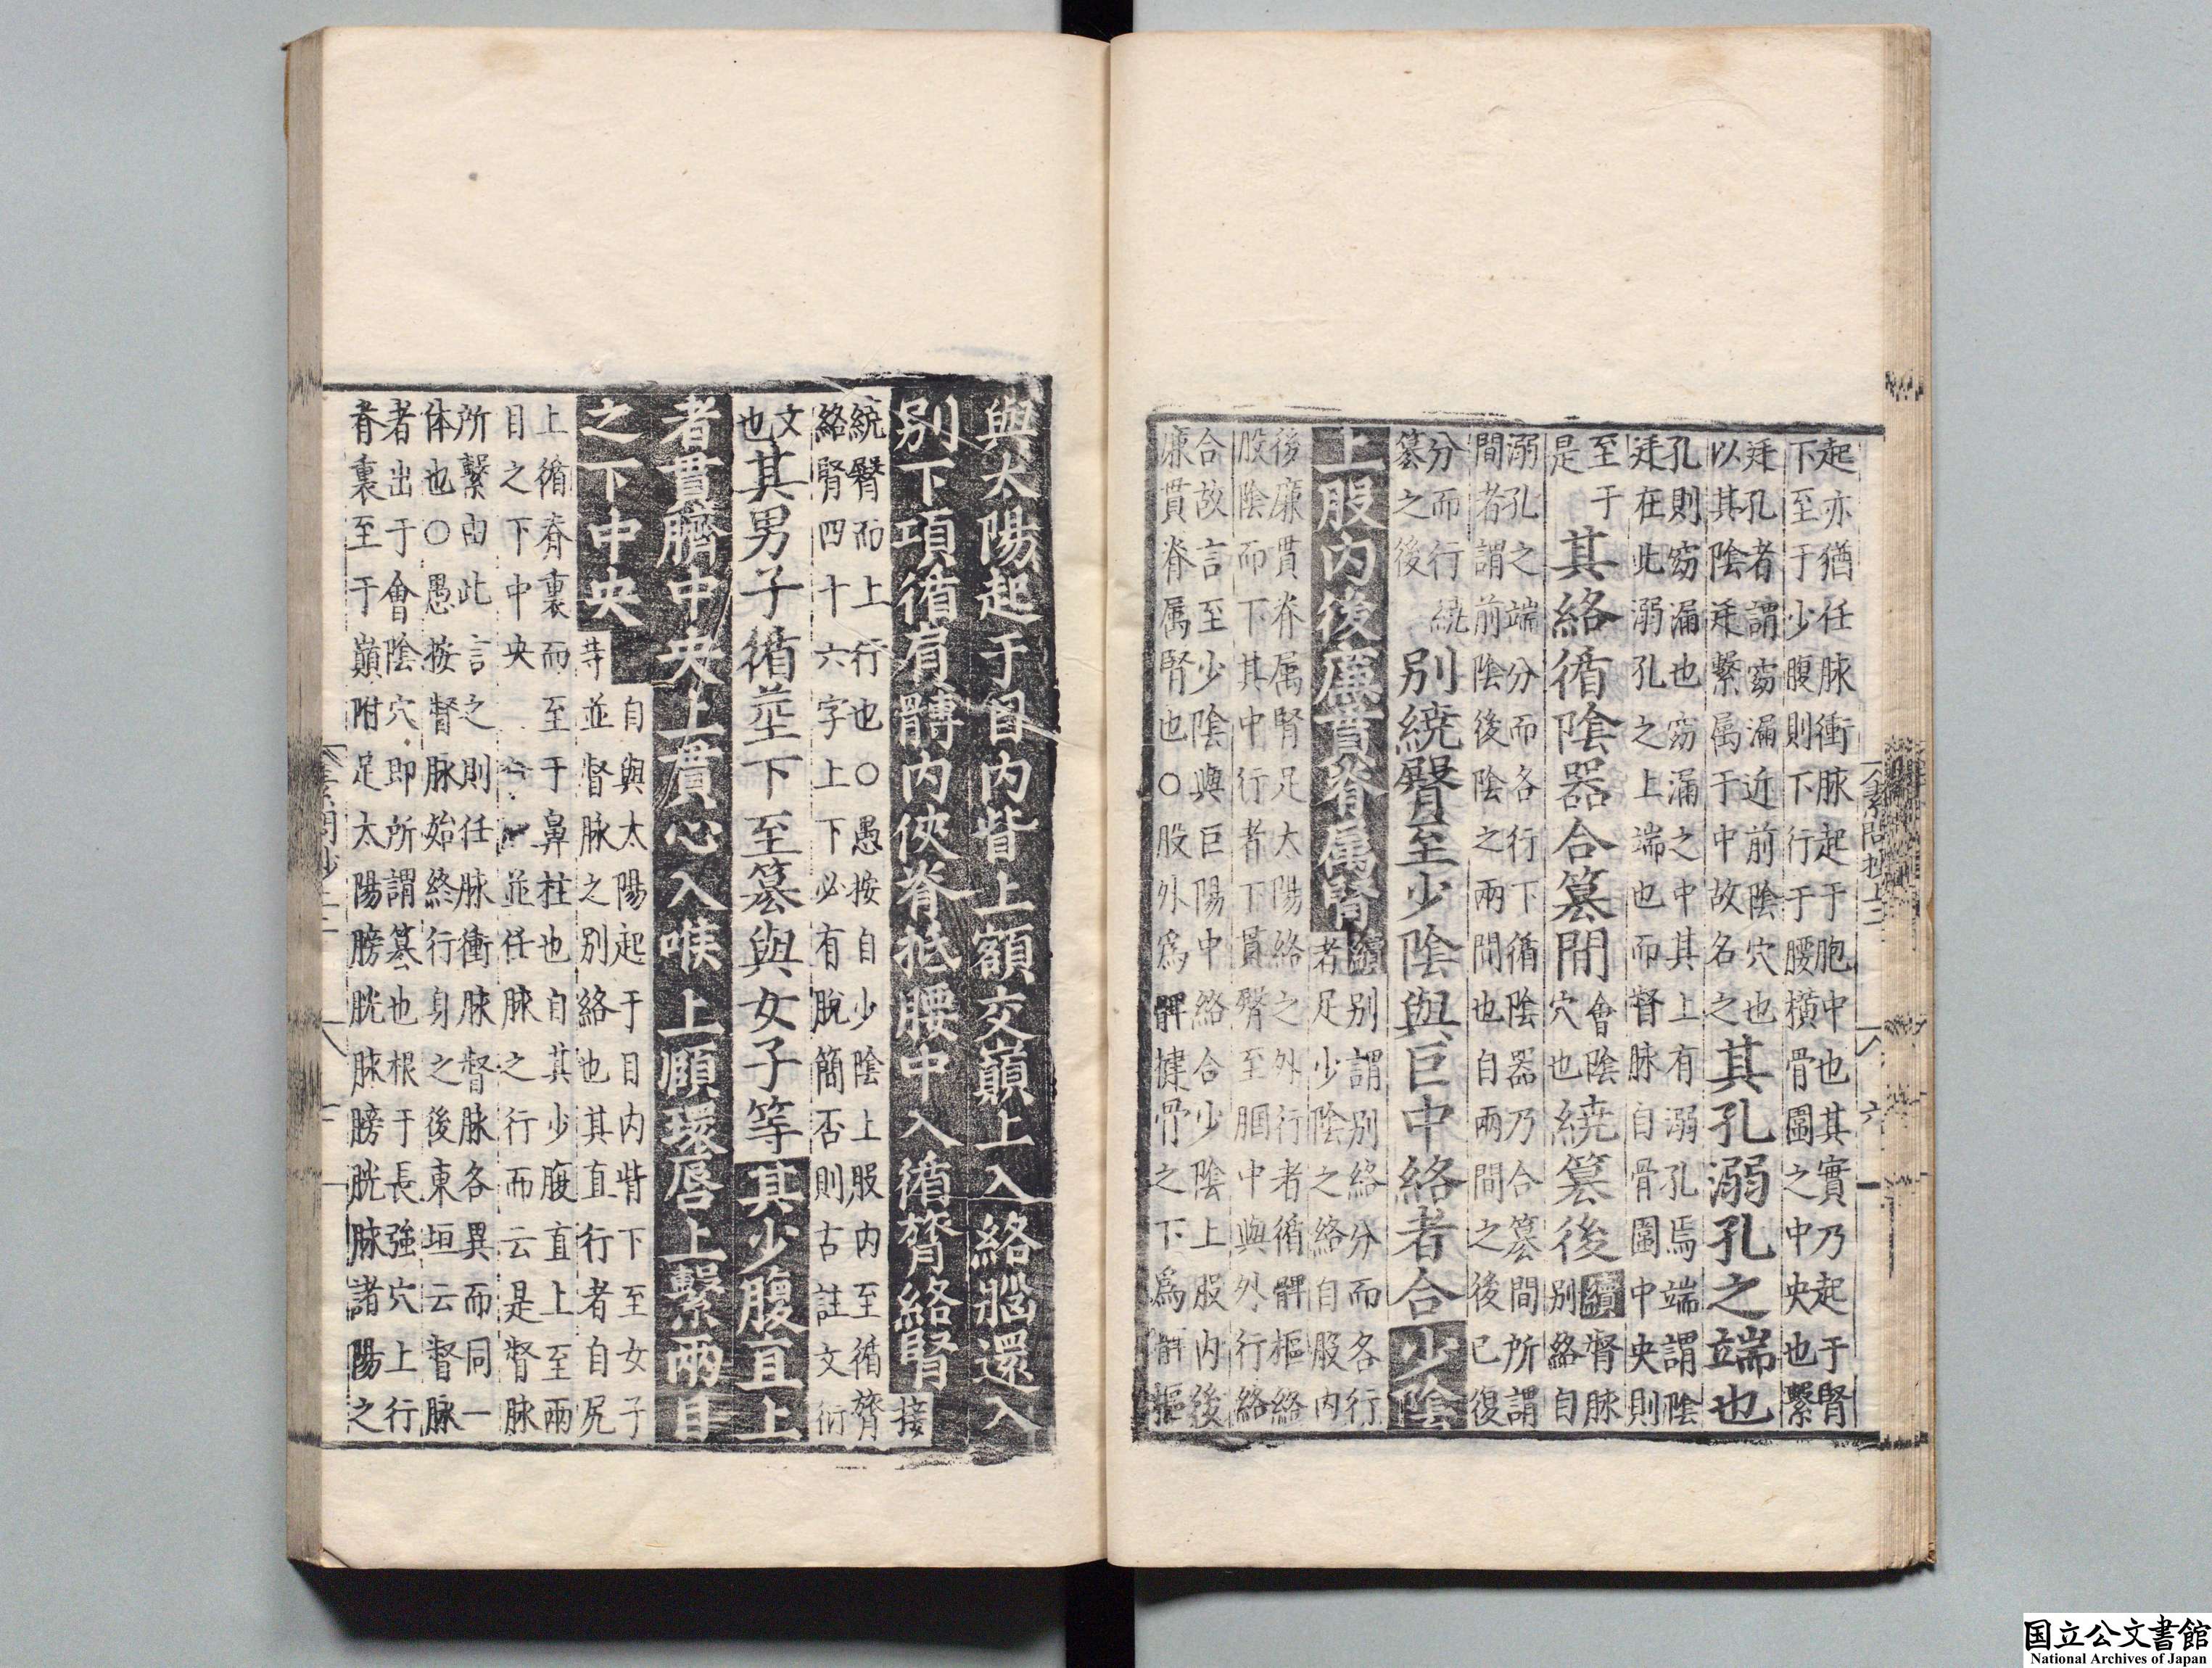 起亦猶任脉衝脉起于胞中也其實乃起于腎
下至于少腹則下行于腰橫骨圍之中央也繫
廷孔者謂窈漏近前陰穴也
以其陰廷繫属于中故名之
其孔溺孔之端也
孔則窈漏也窈漏之中其上有溺孔焉端謂陰
廷在此溺孔之上端也而督脉自骨圍中央則
至于
是
其絡循陰器合篡間
會陰
穴也
繞篡後
續督脉
別絡自
溺孔之端分而各行下循陰器乃合篡間所謂
間者謂前陰後陰之兩間也自兩間之後已復
分而行繞
篡之後
別繞臀至少陰與巨中絡者合少陰
上股内後廉貫脊属腎
續別謂別絡分而各行
者足少陰之絡自股内
後廉貫脊属腎足太陽絡之外行者循髀樞絡
股陰而下其中行者下貫臀至膕中與外行絡
合故言至少陰與巨陽中絡合少陰上股内後
廉貫脊属腎也○股外爲髀揵骨之下爲髀樞
素問抄上三
六
與太陽起于目内眥上額交巔上入絡腦還入
別下項循肩髆内俠脊抵腰中入循膂絡腎
接
繞臀而上行也○愚按自少陰上股内至循膂
絡腎四十六字上下必有脫簡否則古註文衍
文
也
其男子循莖下至篡與女子等其少腹直上
者貫臍中央上貫心入喉上頤環唇上繫兩目
之下中央
自與太陽起于目内眥下至女子
等並督脉之別絡也其直行者自尻
上循脊裏而至于鼻柱也自其少腹直上至兩
目之下中央
並任脉之行而云是督脉
所繫由此言之則任脉衝脉督脉各異而同一
体也○愚按督脉始終行身之後東垣云督脉
者出于會陰穴即所謂篡也根于長強穴上行
脊裏至于巔附足太陽膀胱脉膀胱脉諸陽之
国立公文書館
National Archives of Japan